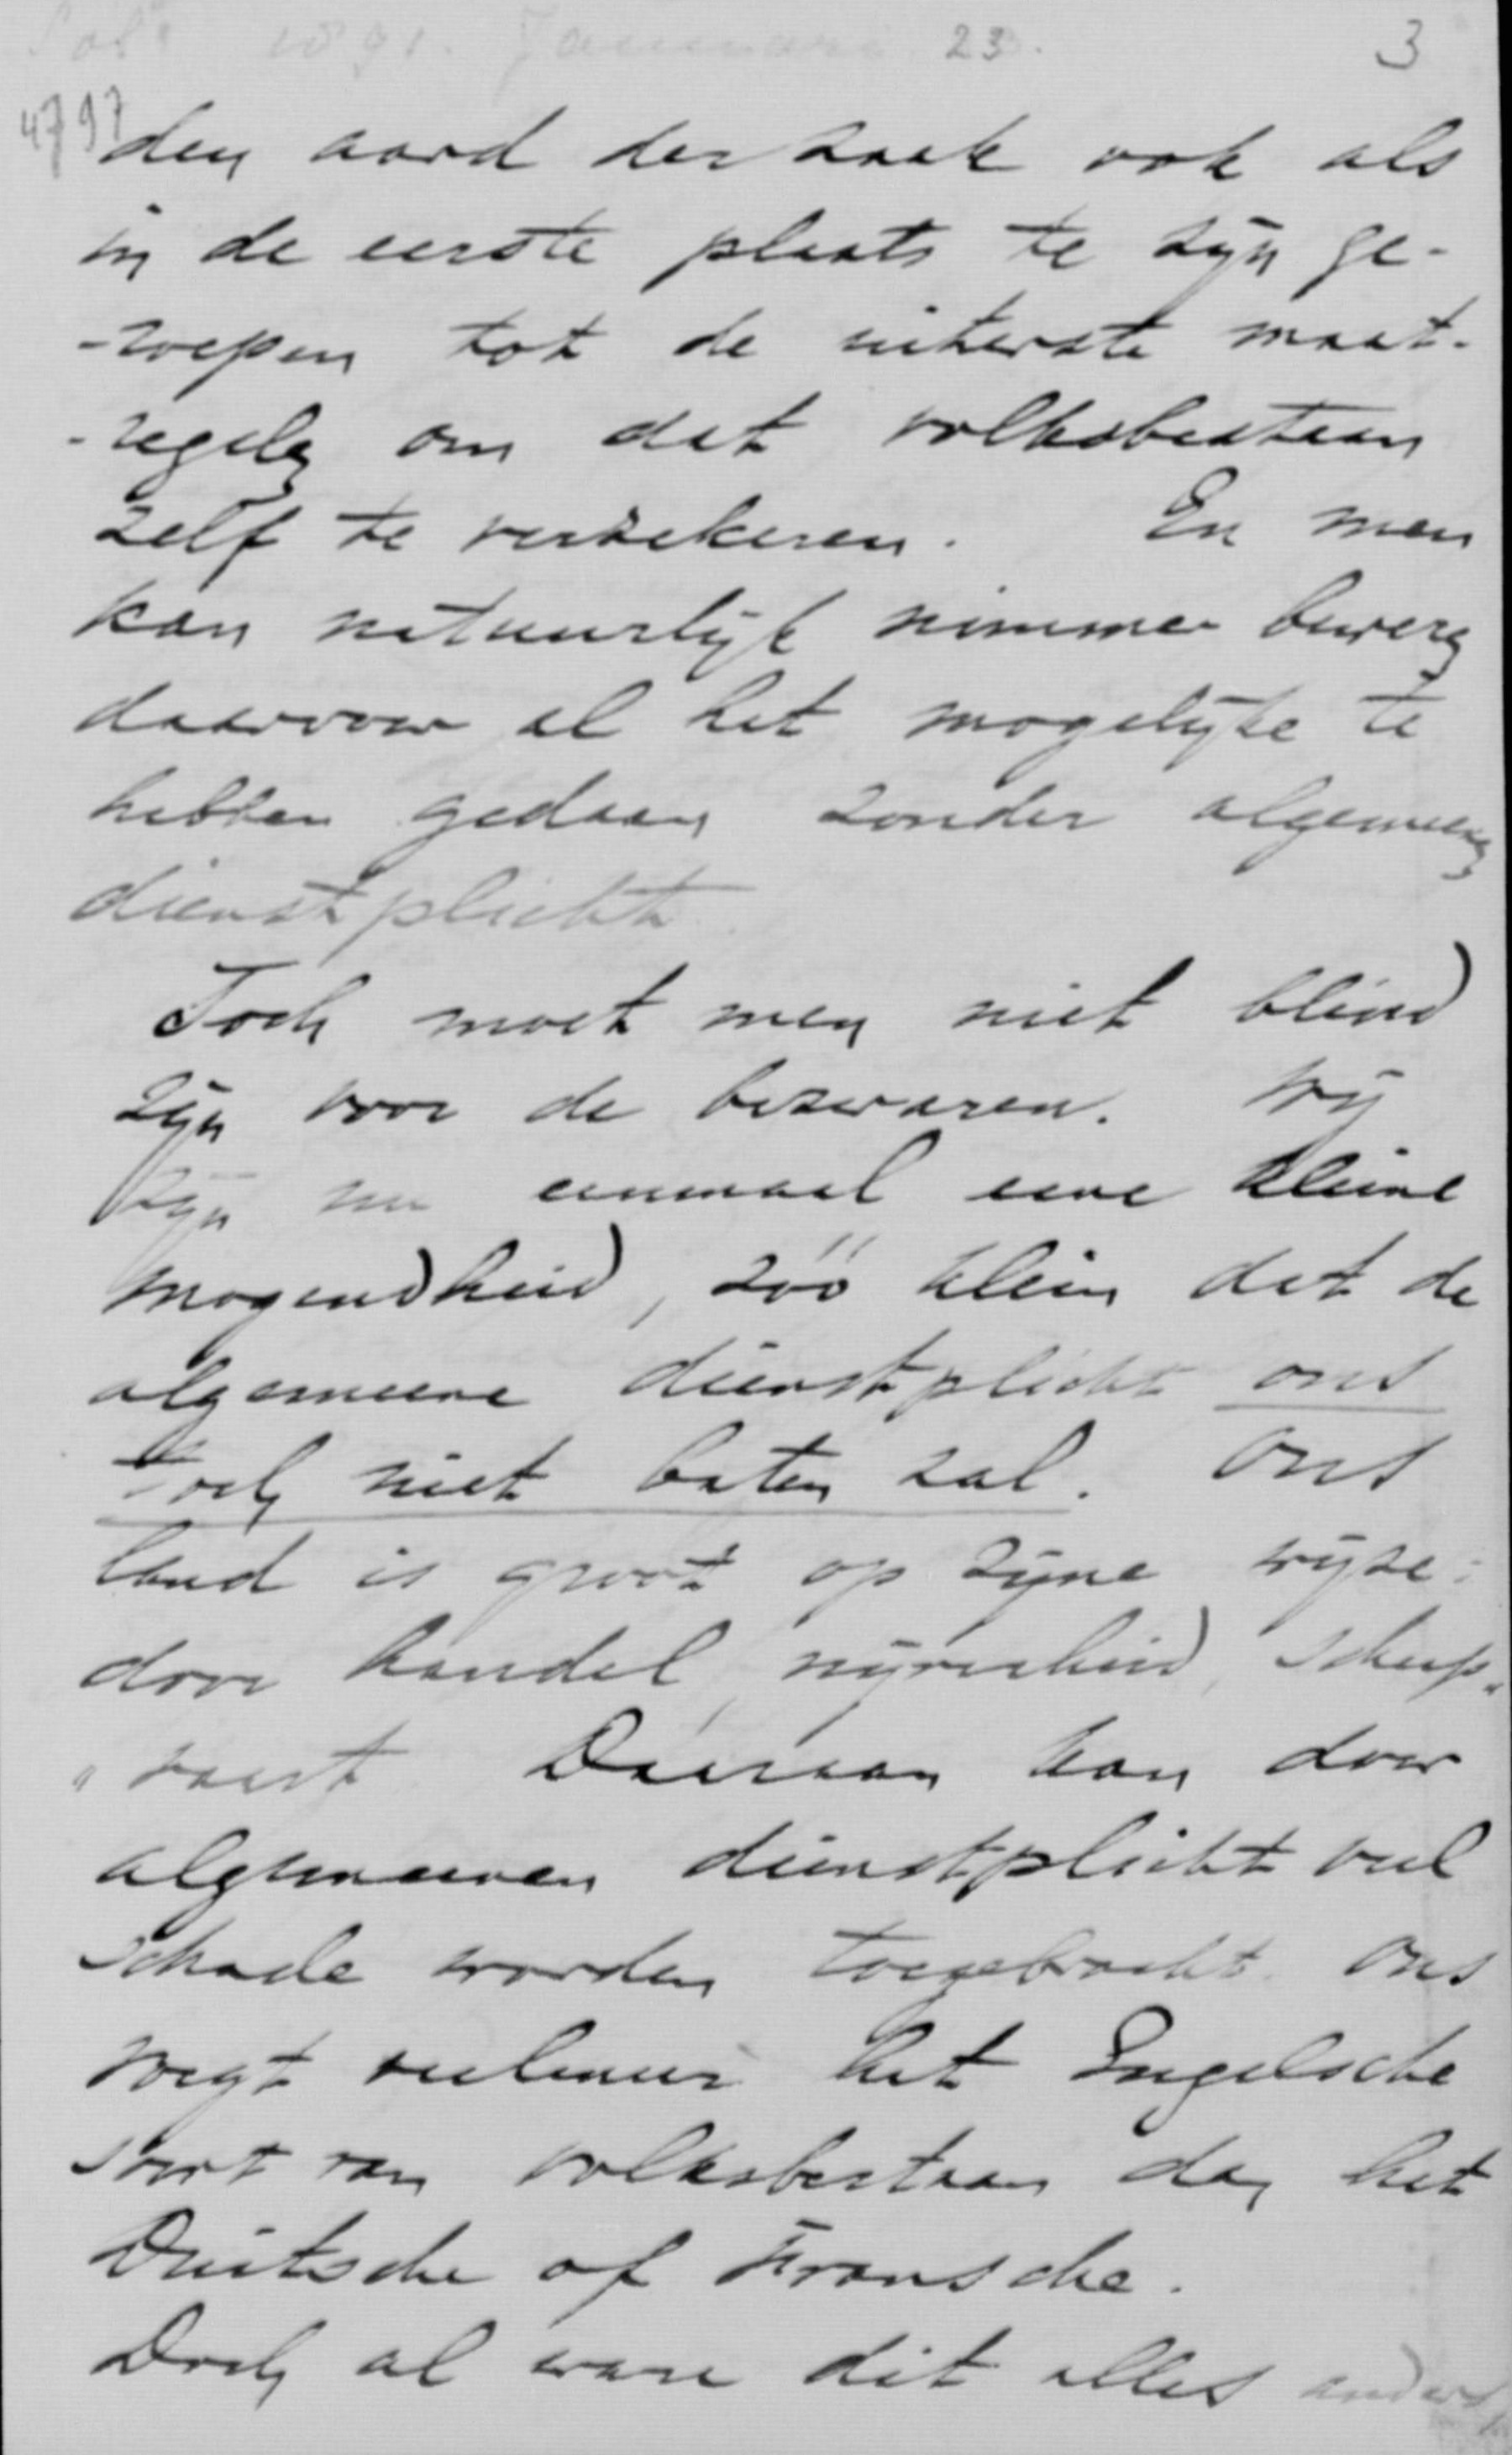 1891. Januari 23. 3
4797
den aard der zaak ook als
in de eerste plaats te zijn ge-
-roepen tot de uiterste maat-
-regelen om dat volksbestaan
zelf te verzekeren. En men
kan natuurlijk nimmer beweren
daarvoor al het mogelijke te
hebben gedaan zonder algemeenen
dienstplicht.
Toch moet men niet blind
zijn voor de bezwaren. Wij
zijn nu eenmaal eene kleine
mogendheid, zóó klein dat de
algemeene dienstplicht ons
toch niet baten zal. Ons
land is groot op zijne wijze:
door handel, nijverheid, scheep„
„vaart. Daaraan kan door
algemeenen dienstplicht veel
schade worden toegebracht. Ons
voegt veelmeer het Engelsche
soort van volksbestaan dan het
Duitsche of Fransche.
Doch al ware dit alles anders,